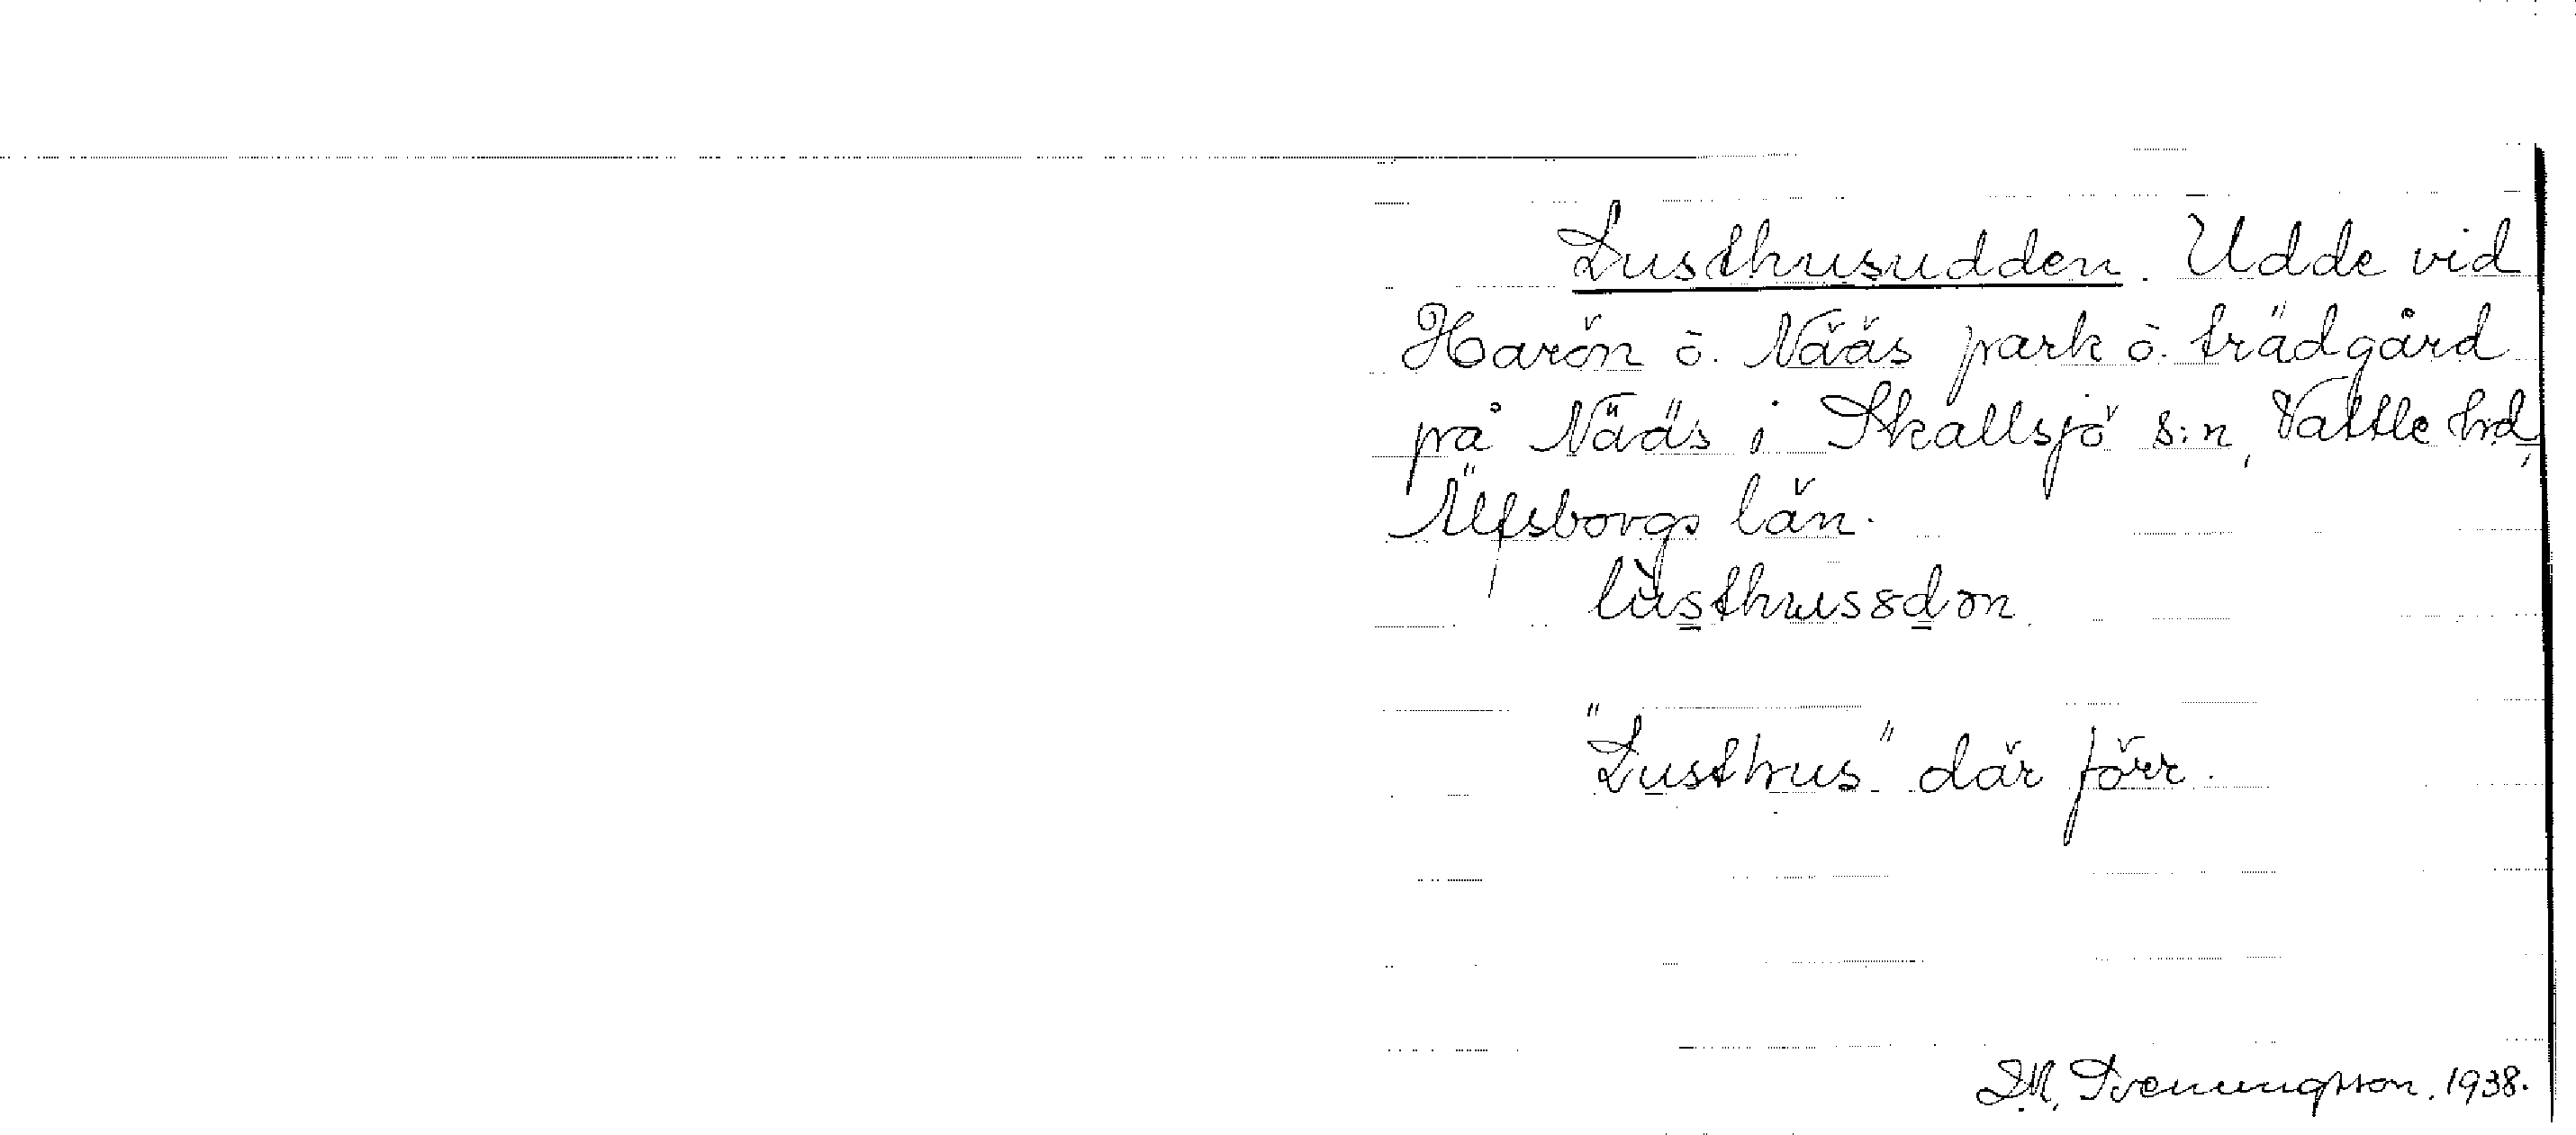 Lusthusudden. Udde vid
Harön o. Nääs park o. trädgård
på Nääs i Skallsjö s:n, Vättle hd,
Älfsborgs län.
"Lusthus" där förr.
D.M. Svenungsson. 1938.